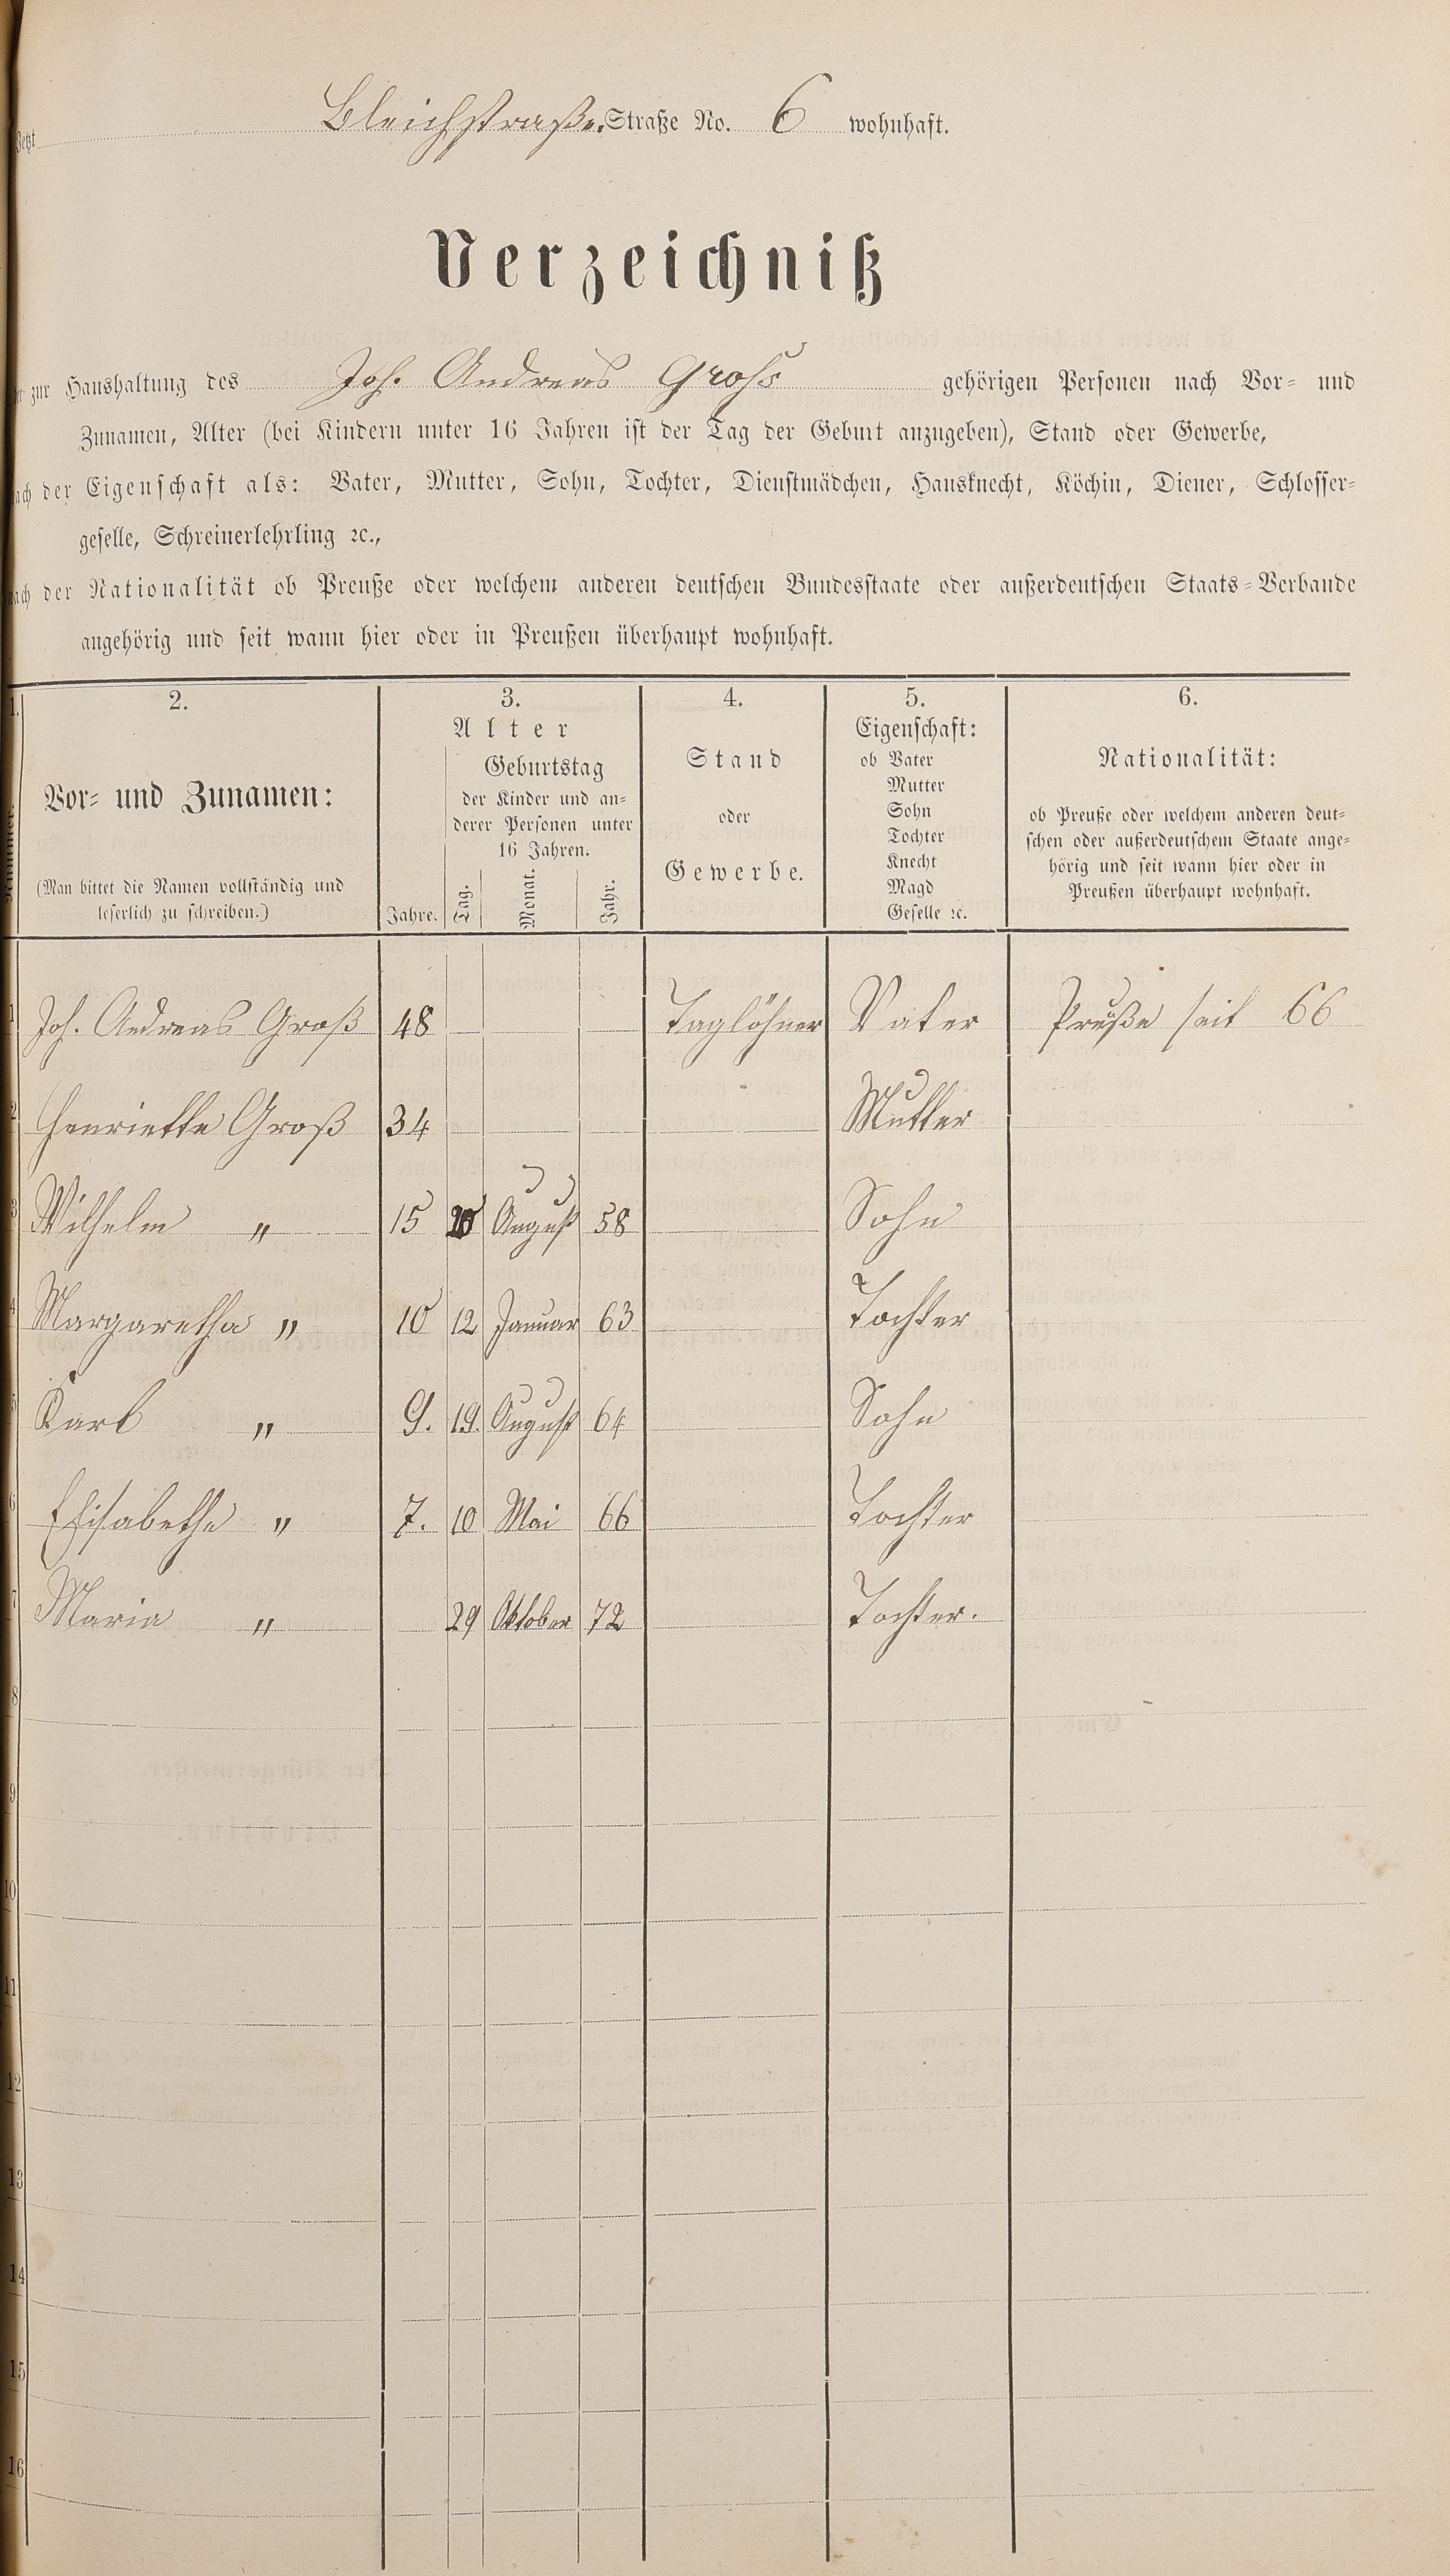 Jetzt Bleichstraße. Straße No. 6 wohnhaft.
Verzeichniß
der zur Haushaltung des Joh. Andreas Groß gehörigen Personen nach Vor- und
Zunamen, Alter (bei Kindern unter 16 Jahren ist der Tag der Geburt anzugeben), Stand oder Gewerbe,
nach der Eigenschaft als: Vater, Mutter, Sohn, Tochter, Dienstmädchen, Hausknecht, Köchin, Diener, Schlosser-
geselle, Schreinerlehrling ꝛc.,
nach der Nationalität ob Preuße oder welchem anderen deutschen Bundesstaate oder außerdeutschen Staats-Verbande
angehörig und seit wann hier oder in Preußen überhaupt wohnhaft.
1. 2. 3. 4. 5. 6.
Nummer.
Vor- und Zunamen:
(Man bittet die Namen vollständig und
leserlich zu schreiben.)
Alter
Jahre.
Geburtstag
der Kinder und an-
derer Personen unter
16 Jahren.
Tag. Monat. Jahr.
Stand
oder
Gewerbe.
Eigenschaft:
ob Vater
Mutter
Sohn
Tochter
Knecht
Magd
Geselle ꝛc.
Nationalität:
ob Preuße oder welchem anderen deut-
schen oder außerdeutschem Staate ange-
hörig und seit wann hier oder in
Preußen überhaupt wohnhaft.
1 Joh. Andreas Groß 48 Taglöhner Vater Preuße seit 66
2 Henriette Groß 34 Mutter
3 Wilhelm " 15 August 58 Sohn
4 Margaretha " 10 12 Januar 63 Tochter
5 Karl " 9. 19. August 64 Sohn
6 Elisabethe " 7. 10 Mai 66 Tochter
7 Maria " 29 Oktober 72 Tochter.
8
9
10
11
12
13
14
15
16